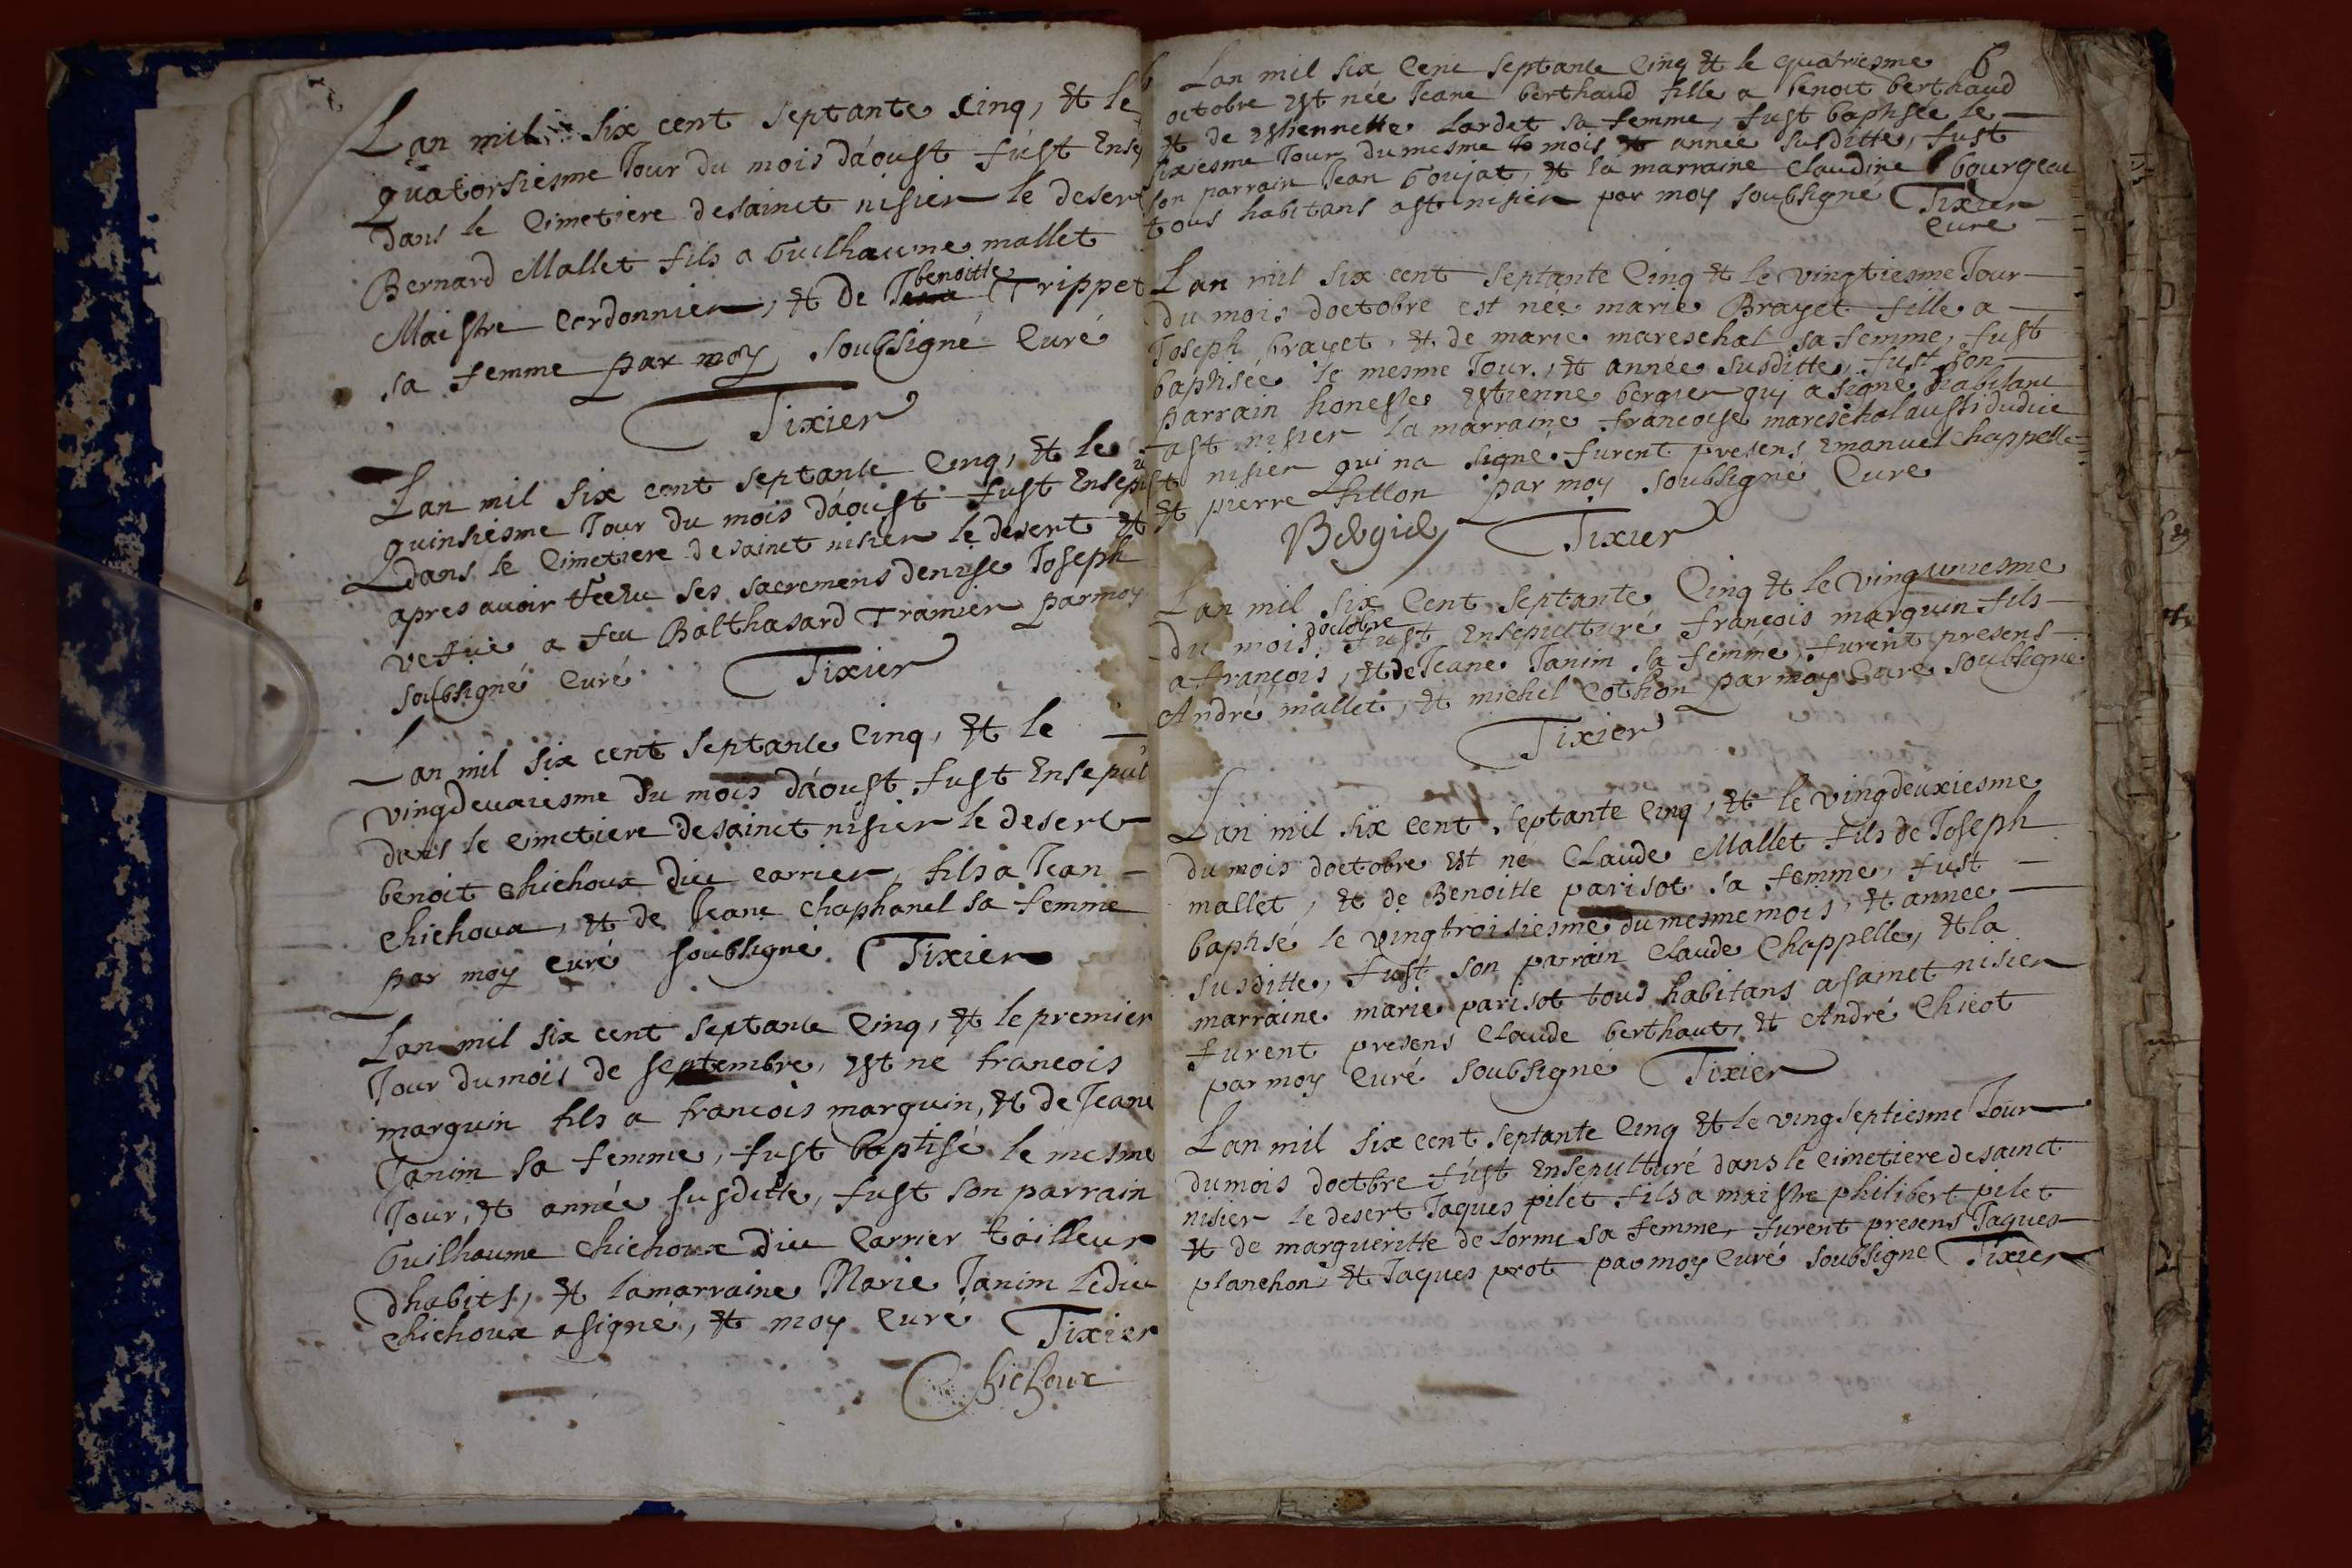 Lan mil six cent septante cinq, et le
quatorsiesme Jour du mois d'aoust fust Ensep
dans le Cimetiere de sainct nisier le desert
Bernard Mallet fils a Guilhaume mallet
Maistre Cordonnier, et de benoitte Trippet
sa femme par moy soubsigné Curé
Tixier
Lan mil six cent septante Cinq, et le
quinsiesme Jour du mois d'aoust fust Ensepu
dans le Cimetiere de sainct nisier le desert et
apres auoir Reçu ses sacremens denise Joseph
vefue a feu Balthasard Tramier par moy
soubsigné Curé Tixier
Lan mil six cent septante Cinq, et le
vingdeuxiesme du mois d'aoust fust Ensepul
dans le cimetiere de sainct nisier le desert
benoit chichoux dict carrier, fils a Jean
chichoux, et de Jeane chaphanel sa femme
par moy curé soubsigné. Tixier
Lan mil six cent septante Cinq, et le premier
Jour du mois de septembre, est ne francois
marguin fils a francois marguin, et de Jeane
Janim sa femme, fust baptisé le mesme
Jour, et année susditte, fust son parrain
Guilhaume chichoux dict Carrier tailleur
dhabits, et la marraine Marie Janim ledict
chichoux a signé, et moy Curé Tixier
Chichoux
6
Lan mil six Cent septante Cinq et le quatriesme
octobre est née Jeane berthaud fille a benoit berthaud
et de estiennette Lardet sa femme, fust baptisée le
sixiesme Jour du mesme mois et année susditte, fust
son parrain Jean Goujat, et la marraine Claudine bourgeau
tous habitans a st nisier par moy soubsigné Tixier
Curé
Lan mil six cent septante Cinq et le vingtiesme Jour
du mois doctobre est née marie Brayet fille a
Joseph brayet, et de marie mareschal sa femme, fust
baptisée le mesme Jour, et année susditte, fust son
parrain honeste estienne bergier qui a signé habitant
a st nisier la marraine francoise mareschal aussi dudict
st nisier qui na signé. furent presens Emanuel chappelle
et pierre fillon par moy soubsigné Curé
Tixier
Lan mil six Cent septante Cinq et le vingunuesme
du mois doctobre fust Ensepulturé françois marguin fils
a françois, et de Jeane Janim sa femme, furent presens
André mallet, et michel cothon par moy Curé soubsigné
Tixier
Lan mil six cent septante cinq, et le vingdeuxiesme
du mois doctobre est né Claude Mallet fils de Joseph
mallet, et de Benoitte parisot sa femme, fust
baptisé le vingtroisiesme du mesme mois, et annee
susditte, fust son parrain Claude Chappelle, et la
marraine marie parisot tous habitans a sainct nisier
furent presens Claude berthaut, et André Chicot
par moy Curé soubsigné Tixier
Lan mil six cent septante Cinq et le vingseptiesme Jour
du mois doctbre fust Ensepulturé dans le cimetiere de sainct
nisier le desert Jaques pilet fils a maistre philibert pilet
et de margueritte de Lorme sa femme, furent presens Jaques
planchon, et Jaques prot par moy Curé soubsigne Tixier